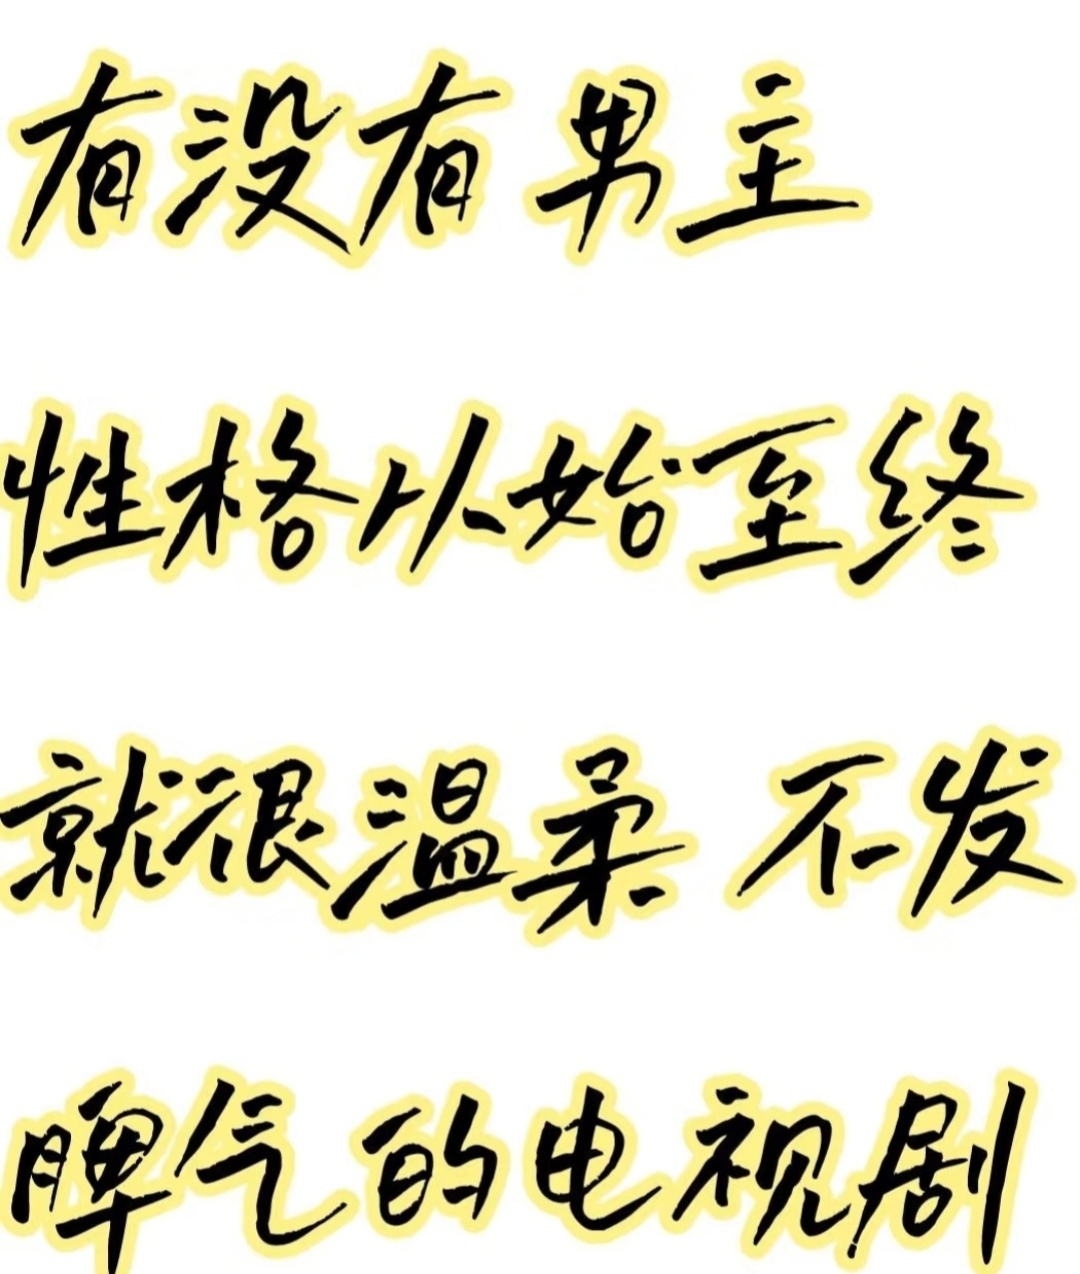 有没有男主
性格以始至终
就很温柔 不发
脾气的电视剧